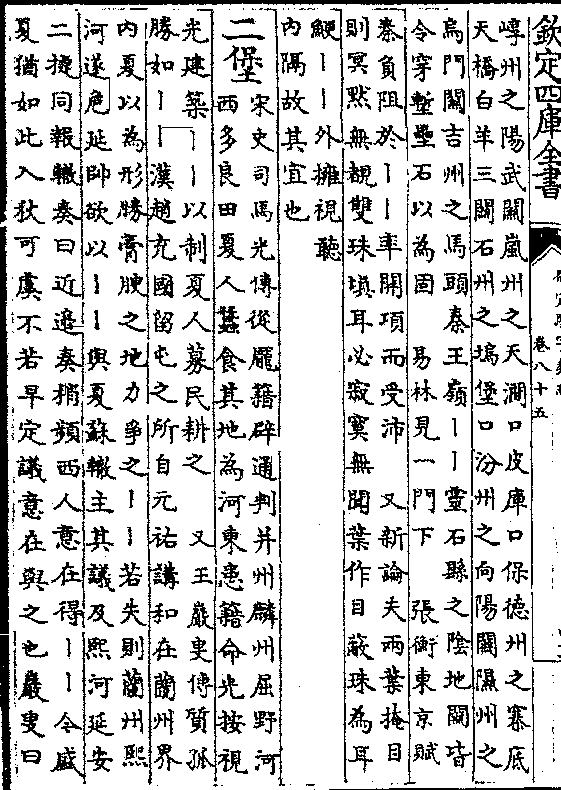 欽定四庫全書
卷八十五
崞州之陽武關嵐州之天澗口皮庫口保德州之寨底
天橋白羊三關石州之塢堡口汾州之向陽關隰州之
烏門關吉州之馬頭秦王嶺丨丨靈石縣之陰地關皆
令穿塹壘石以為固 易林見一門下 張衡東京賦
秦負阻於丨丨率開項而受沛 又新論夫兩葉掩目
則冥默無覩雙珠填耳必寂寞無聞葉作目蔽珠為耳
鯁丨丨外擁視聽
內隔故其宜也
二堡 宋史司馬光傳從龐籍辟通判并州麟州屈野河
西多良田夏人蠶食其地為河東患籍命光按視
光建築丨丨以制夏人募民耕之 又王巖叟傳質孤
勝如丨丨漢趙充國留屯之所自元祐講和在蘭州界
內夏以為形勝膏腴之地力爭之丨丨若失則蘭州熙
河遂危延帥欲以丨丨與夏蘇轍主其議及熙河延安
二捷同報轍奏曰近邊奏稍頻西人意在得丨丨今盛
夏猶如此入秋可虞不若早定議意在與之也巖叟曰